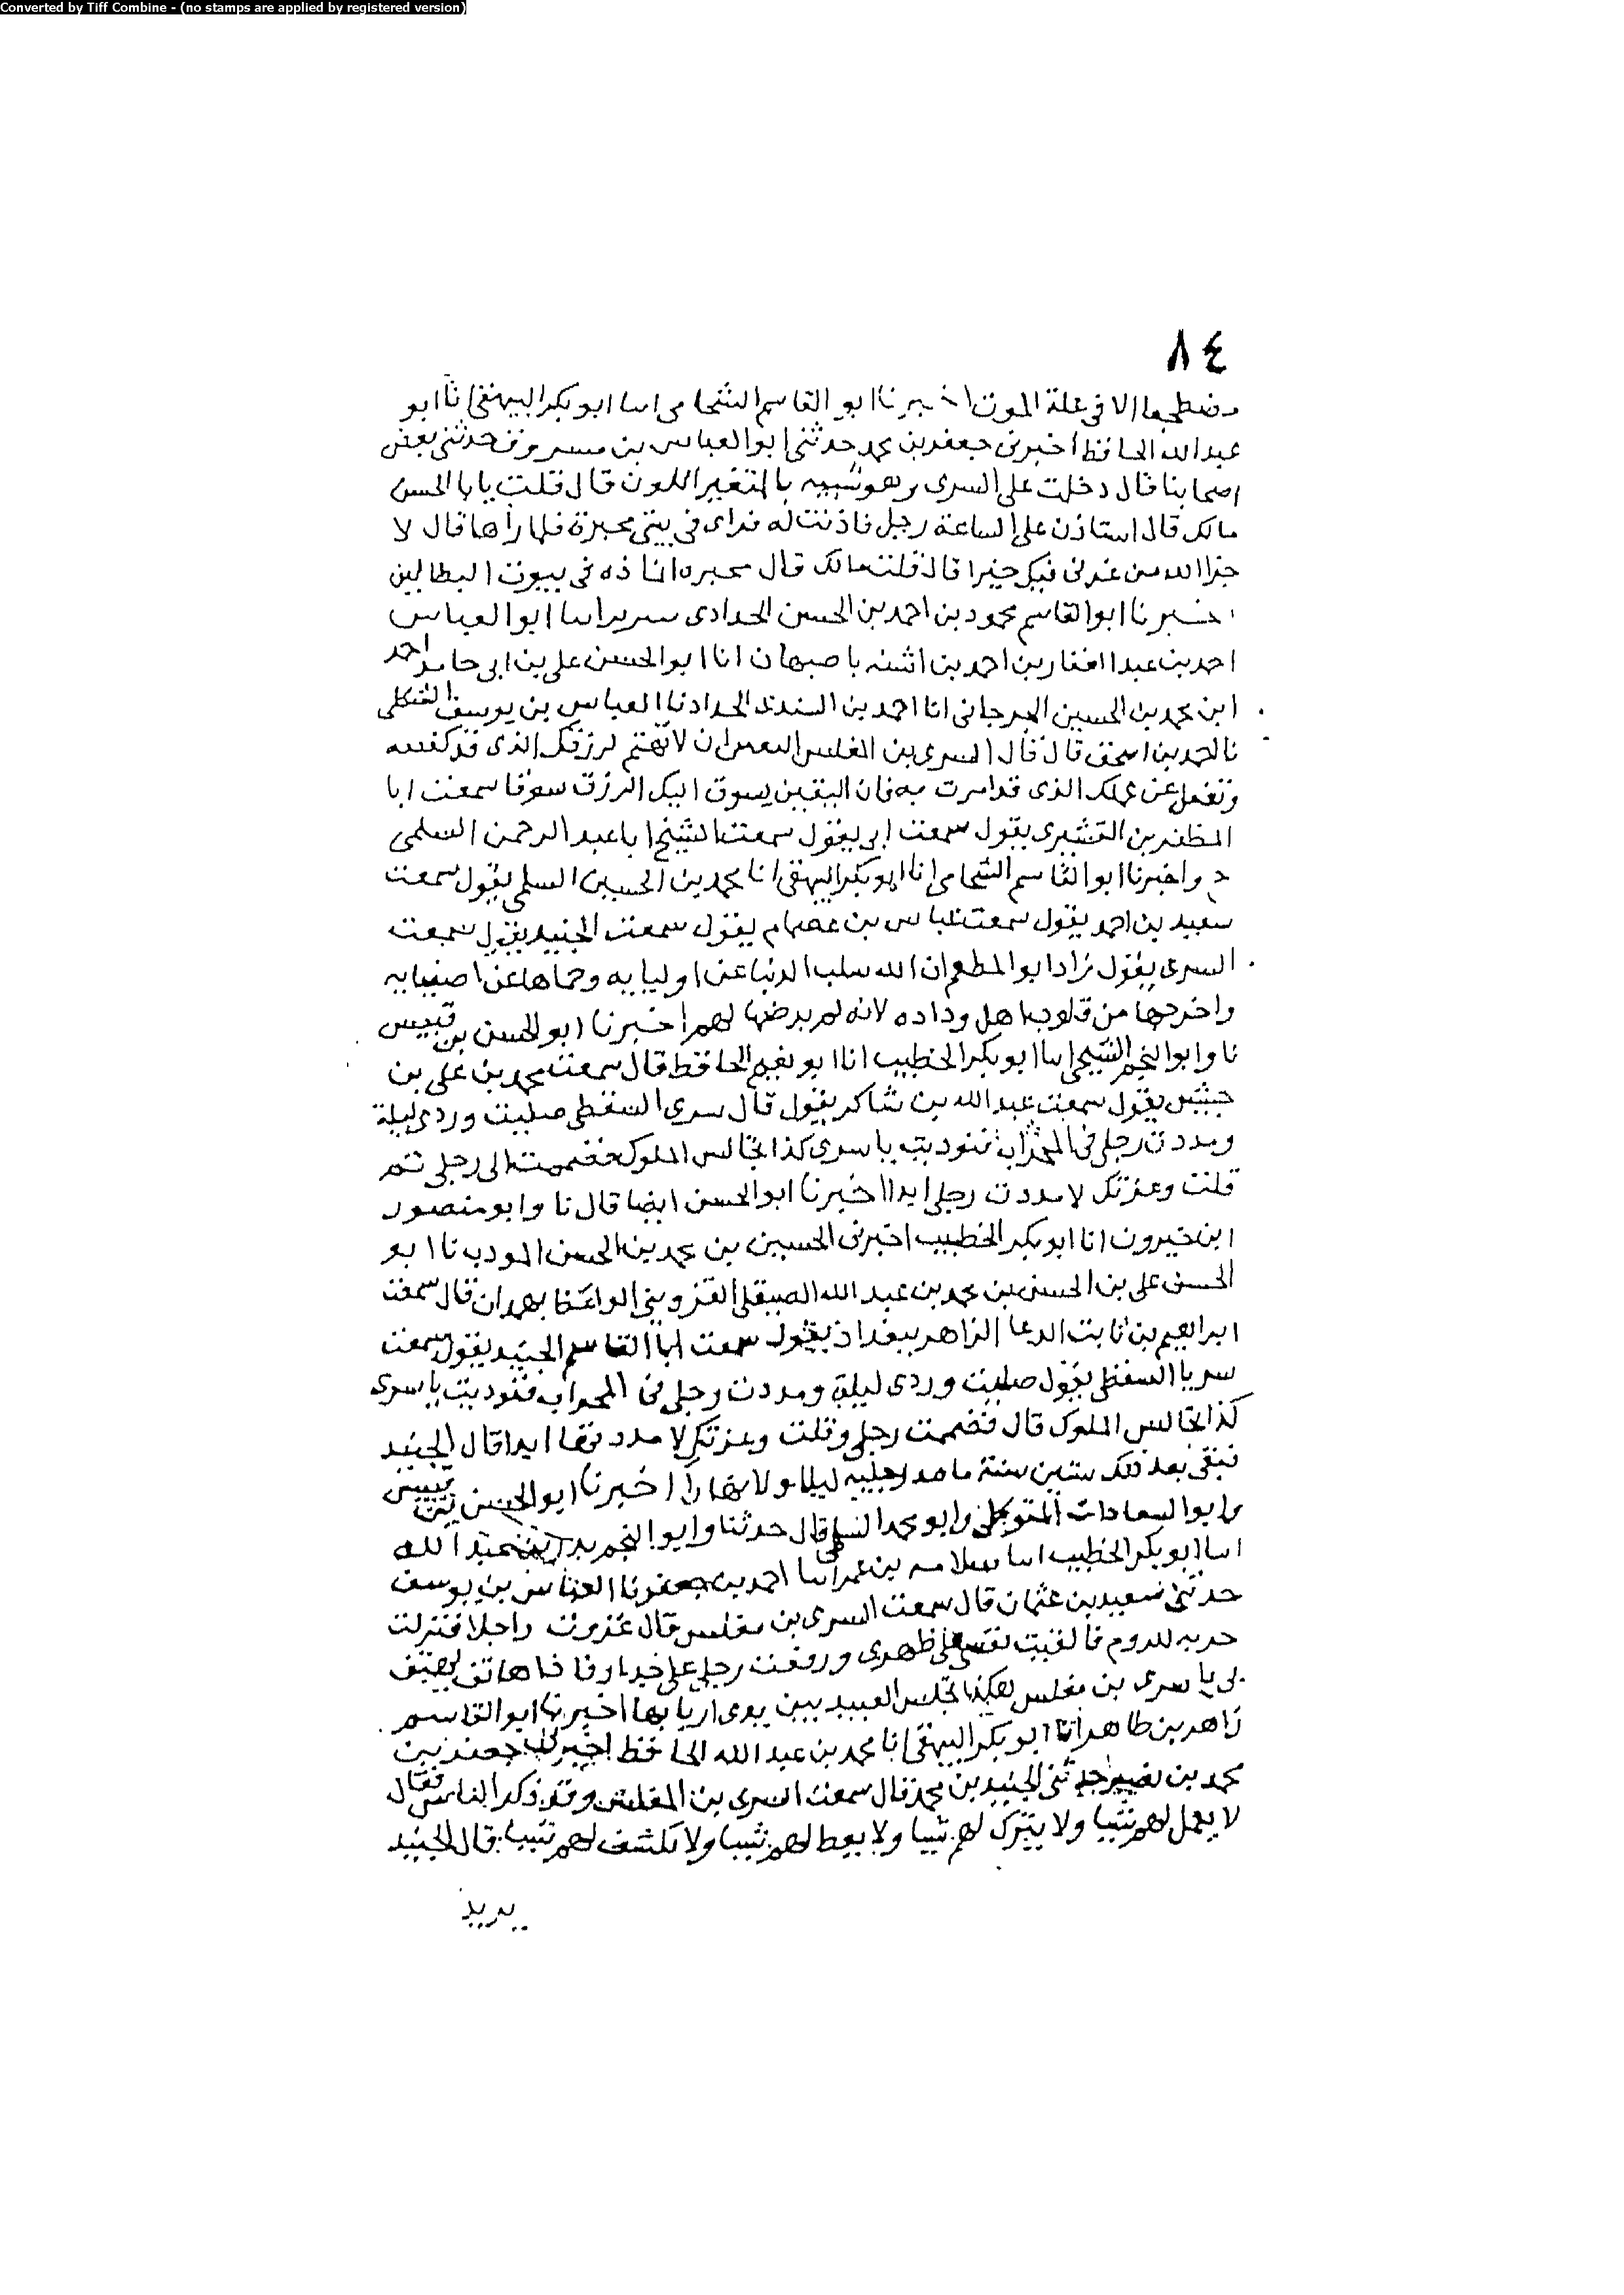 Converted by Tiff Combine - (no stamps are applied by registered version)
٨٤
مضطجعا الا في علة الموت اخبرنا ابو القاسم الشحامي انا ابو بكر البيهقي انا ابو
عبد الله الحافظ اخبرني جعفر بن محمد حدثني ابو العباس بن مسروق حدثني بعض
اصحابنا قال دخلت على السري وهو شبيه بالمتغير اللون قال قلت يابا الحسن
مالك قال استاذن على الساعة رجل فاذنت له فراى في بيتي محبرة فلما راها قال لا
جزا الله من غرني فيك خيرا قال قلت مالك قال محبره انا ذه في بيوت البطالين
اخبرنا ابو القاسم محمود بن احمد بن الحسن الحدادي انا ابو العباس
احمد بن عبد الغفار بن احمد بن اشته باصبهان انا ابو الحسن علي بن ابي حامد احمد
ابن محمد بن الحسين الجرجاني انا احمد بن السندي الحداد نا العباس بن يوسف الشكلي
نا احمد بن اسحق قال قال السري بن المغلس ان لا تهتم لرزقك الذي قد كفيته
وتغفل عن عملك الذي قد امرت به فان اليقين يسوق اليك الرزق سوقا سمعت ابا
المظفر بن القشيري يقول سمعت ابي يقول سمعت الشيخ ابا عبد الرحمن السلمي
ح واخبرنا ابو القاسم الشحامي انا ابو بكر البيهقي انا محمد بن الحسين السلمي يقول سمعت
سعيد بن احمد يقول سمعت عباس بن عصام يقول سمعت الجنيد يقول سمعت
السري يقول زاد ابو المظفر ان الله سلب الدنيا عن اوليايه وحماها عن اصفيايه
واخرجها من قلوب اهل وداده لانه لم يرضها لهم اخبرنا ابو الحسن بن قبيس
نا وابو النجم الشيحي انا ابو بكر الخطيب انا ابو نعيم الحافظ قال سمعت محمد بن علي بن
حبيش يقول سمعت عبد الله بن شاكر يقول قال سري السقطي صليت وردي ليلة
ومددت رجلي في المحراب فنوديت يا سري كذا تجالس الملوك فضممت الى رجلي ثم
قلت وعزتك لا مددت رجلي ابدا اخبرنا ابو الحسن ايضا قال نا وابو منصور
ابن خيرون انا ابو بكر الخطيب اخبرني الحسين بن محمد بن الحسن المودب نا ابو
الحسن علي بن الحسن بن محمد بن عبد الله الصيقلي القزويني الواعظ بهمدان قال سمعت
ابراهيم بن ثابت الدعا الزاهد ببغداذ يقول سمعت ابا القاسم الجنيد يقول سمعت
سريا السقطي يقول صليت وردي ليلة ومددت رجلي في المحراب فنوديت يا سري
كذا تجالس الملوك قال فضممت رجلي وقلت وعزتك لا مددتها ابدا قال الجنيد
فبقي بعد ذلك ستين سنة ما مد رجليه ليلا ولا نهارا اخبرنا ابو الحسن بن قبيس
وابو السعادات المتوكلي وابو محمد السلمي قال حدثنا وابو النجم بدر بن عبد الله
انا ابو بكر الخطيب انا سلامه بن عمر انا احمد بن جعفر نا العباس بن يوسف
حدثني سعيد بن عثمان قال سمعت السري بن مغلس قال غزوت راجلا فنزلت
خربه للروم فالقيت نفسي على ظهري ورفعت رجلي على جدار فاذا هاتف يهتف
بي يا سري بن مغلس هكذا تجلس العبيد بين يدي اربابها اخبرنا ابو القاسم
زاهر بن طاهر انا ابو بكر البيهقي انا محمد بن عبد الله الحافظ اخبرني جعفر بن
محمد بن نصير حدثني الجنيد بن محمد قال سمعت السري بن المغلس وقد ذكر الناس فقال
لا يعمل لهم شيا ولا يترك لهم شيا ولا يعط لهم شيا ولا يكشف لهم شيا قال الجنيد
يريد